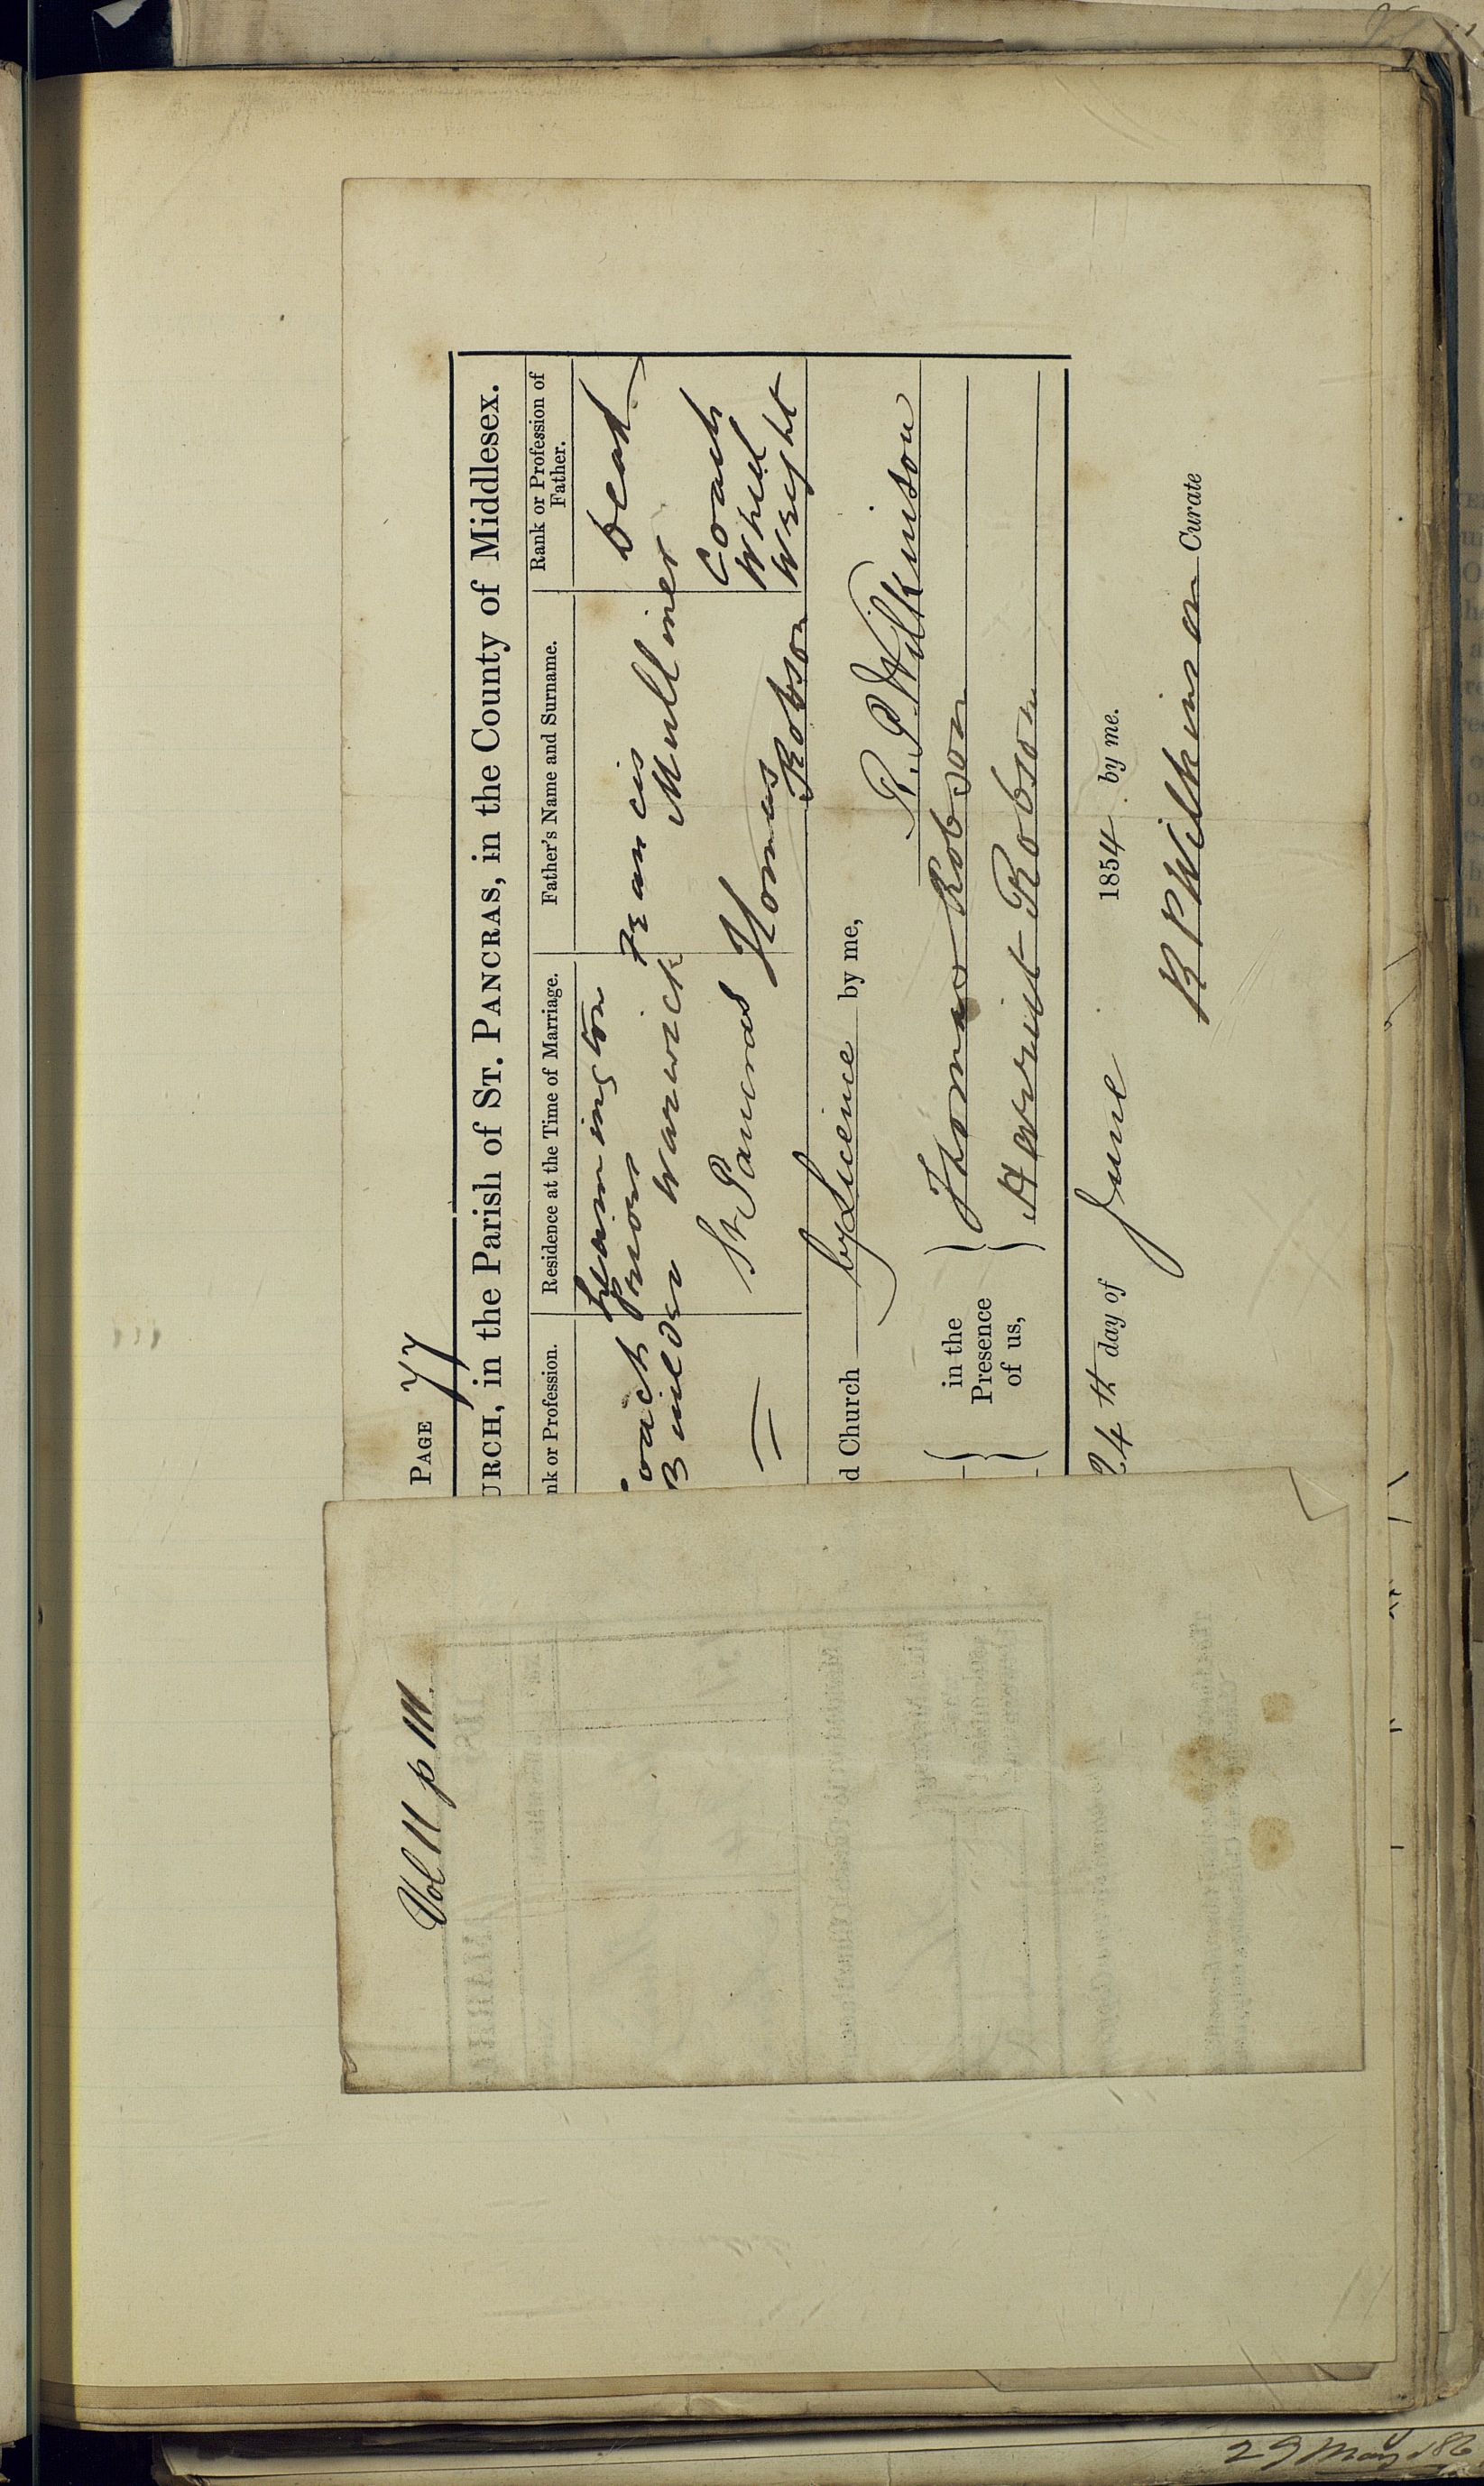 Vol 11 p 111.
PAGE 77
URCH, in the Parish of ST. PANCRAS, in the County of Middlesex.
nk or Profession.
Residence at the Time of Marriage.
Father's Name and Surname.
Rank or Profession of
Father.
oach
Builder
Leamington
Priors
Warwick
Francis
Mulliner
Dead
St Pancras
Thomas
Robson
Coach
Wheel
Wright
d Church by Licence by me,
R. P. Wilkinson
in the
Presence
of us,
Thomas Robson
Harriet Robson
24th day of June 1854 by me.
R P Wilkinson Curate
29 May 186